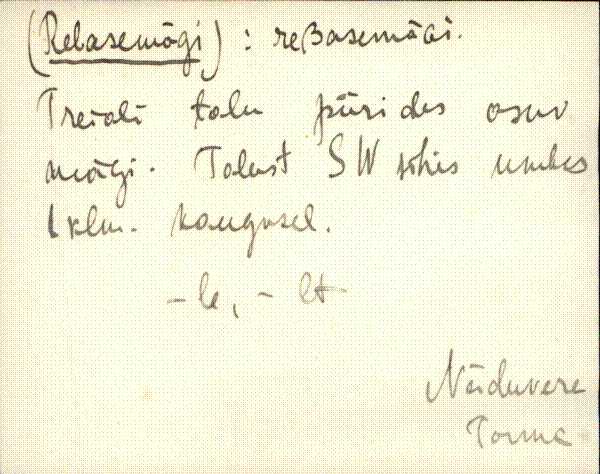 (Rebasemägi) : reBasemäGi.
Treiali talu piirides asuv
mägi. Talust SW sihis umbes
1 klm. kaugusel.
-le, -lt
Näduvere
Torma